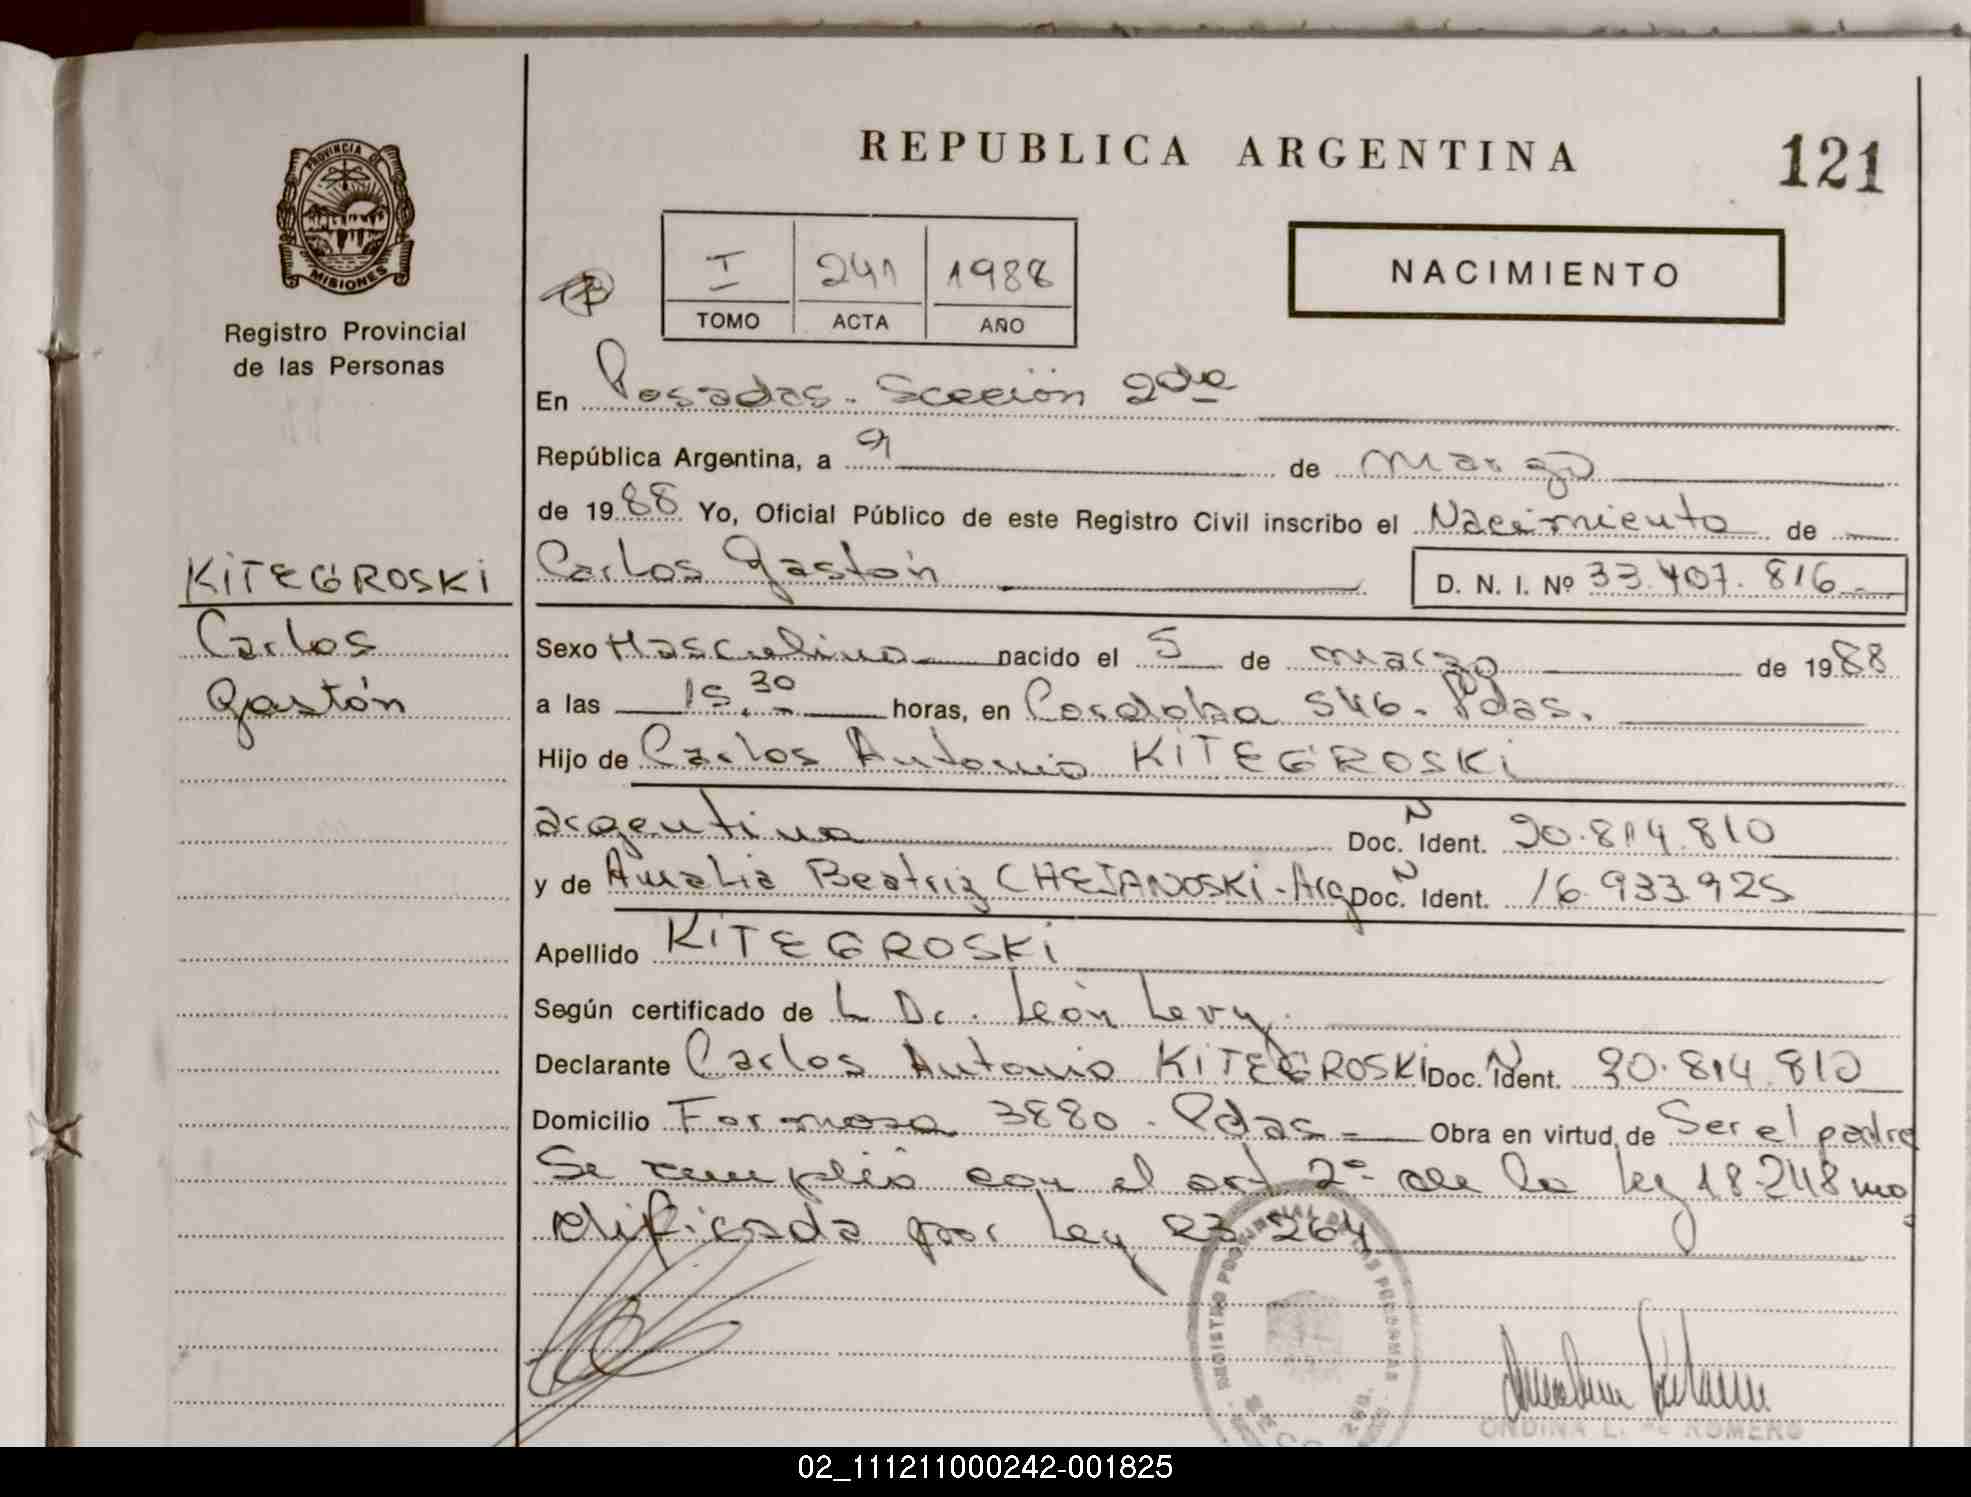 REPUBLICA ARGENTINA
121
PROVINCIA DE
MISIONES
Registro Provincial
de las Personas
I 241 1988
TOMO ACTA AÑO
NACIMIENTO
En Posadas. Sección 2da
República Argentina, a 9 de marzo
de 1988 Yo, Oficial Público de este Registro Civil inscribo el Nacimiento de
KITEGROSKI
Carlos
Gastón
Carlos Gastón D. N. I. Nº 33.407.816
Sexo Masculino nacido el 5 de marzo de 1988
a las 15.30 horas, en Cordoba 546. Pdas.
Hijo de Carlos Antonio KITEGROSKI
argentino Doc. N Ident. 20.814.810
y de Amalia Beatriz CHEJANOSKI - Arg Doc. N Ident. 16.933.925
Apellido KITEGROSKI
Según certificado de L Dr. León Levy.
Declarante Carlos Antonio KITEGROSKI Doc. N Ident. 20.814.810
Domicilio Formosa 3880. Pdas - Obra en virtud de Ser el padre
Se cumplió con el art 2º de la ley 18.248 mo
dificada por Ley 23.264
REGISTRO PROVINCIAL DE LAS PERSONAS
ONDINA L. DE ROMERO
02_111211000242-001825